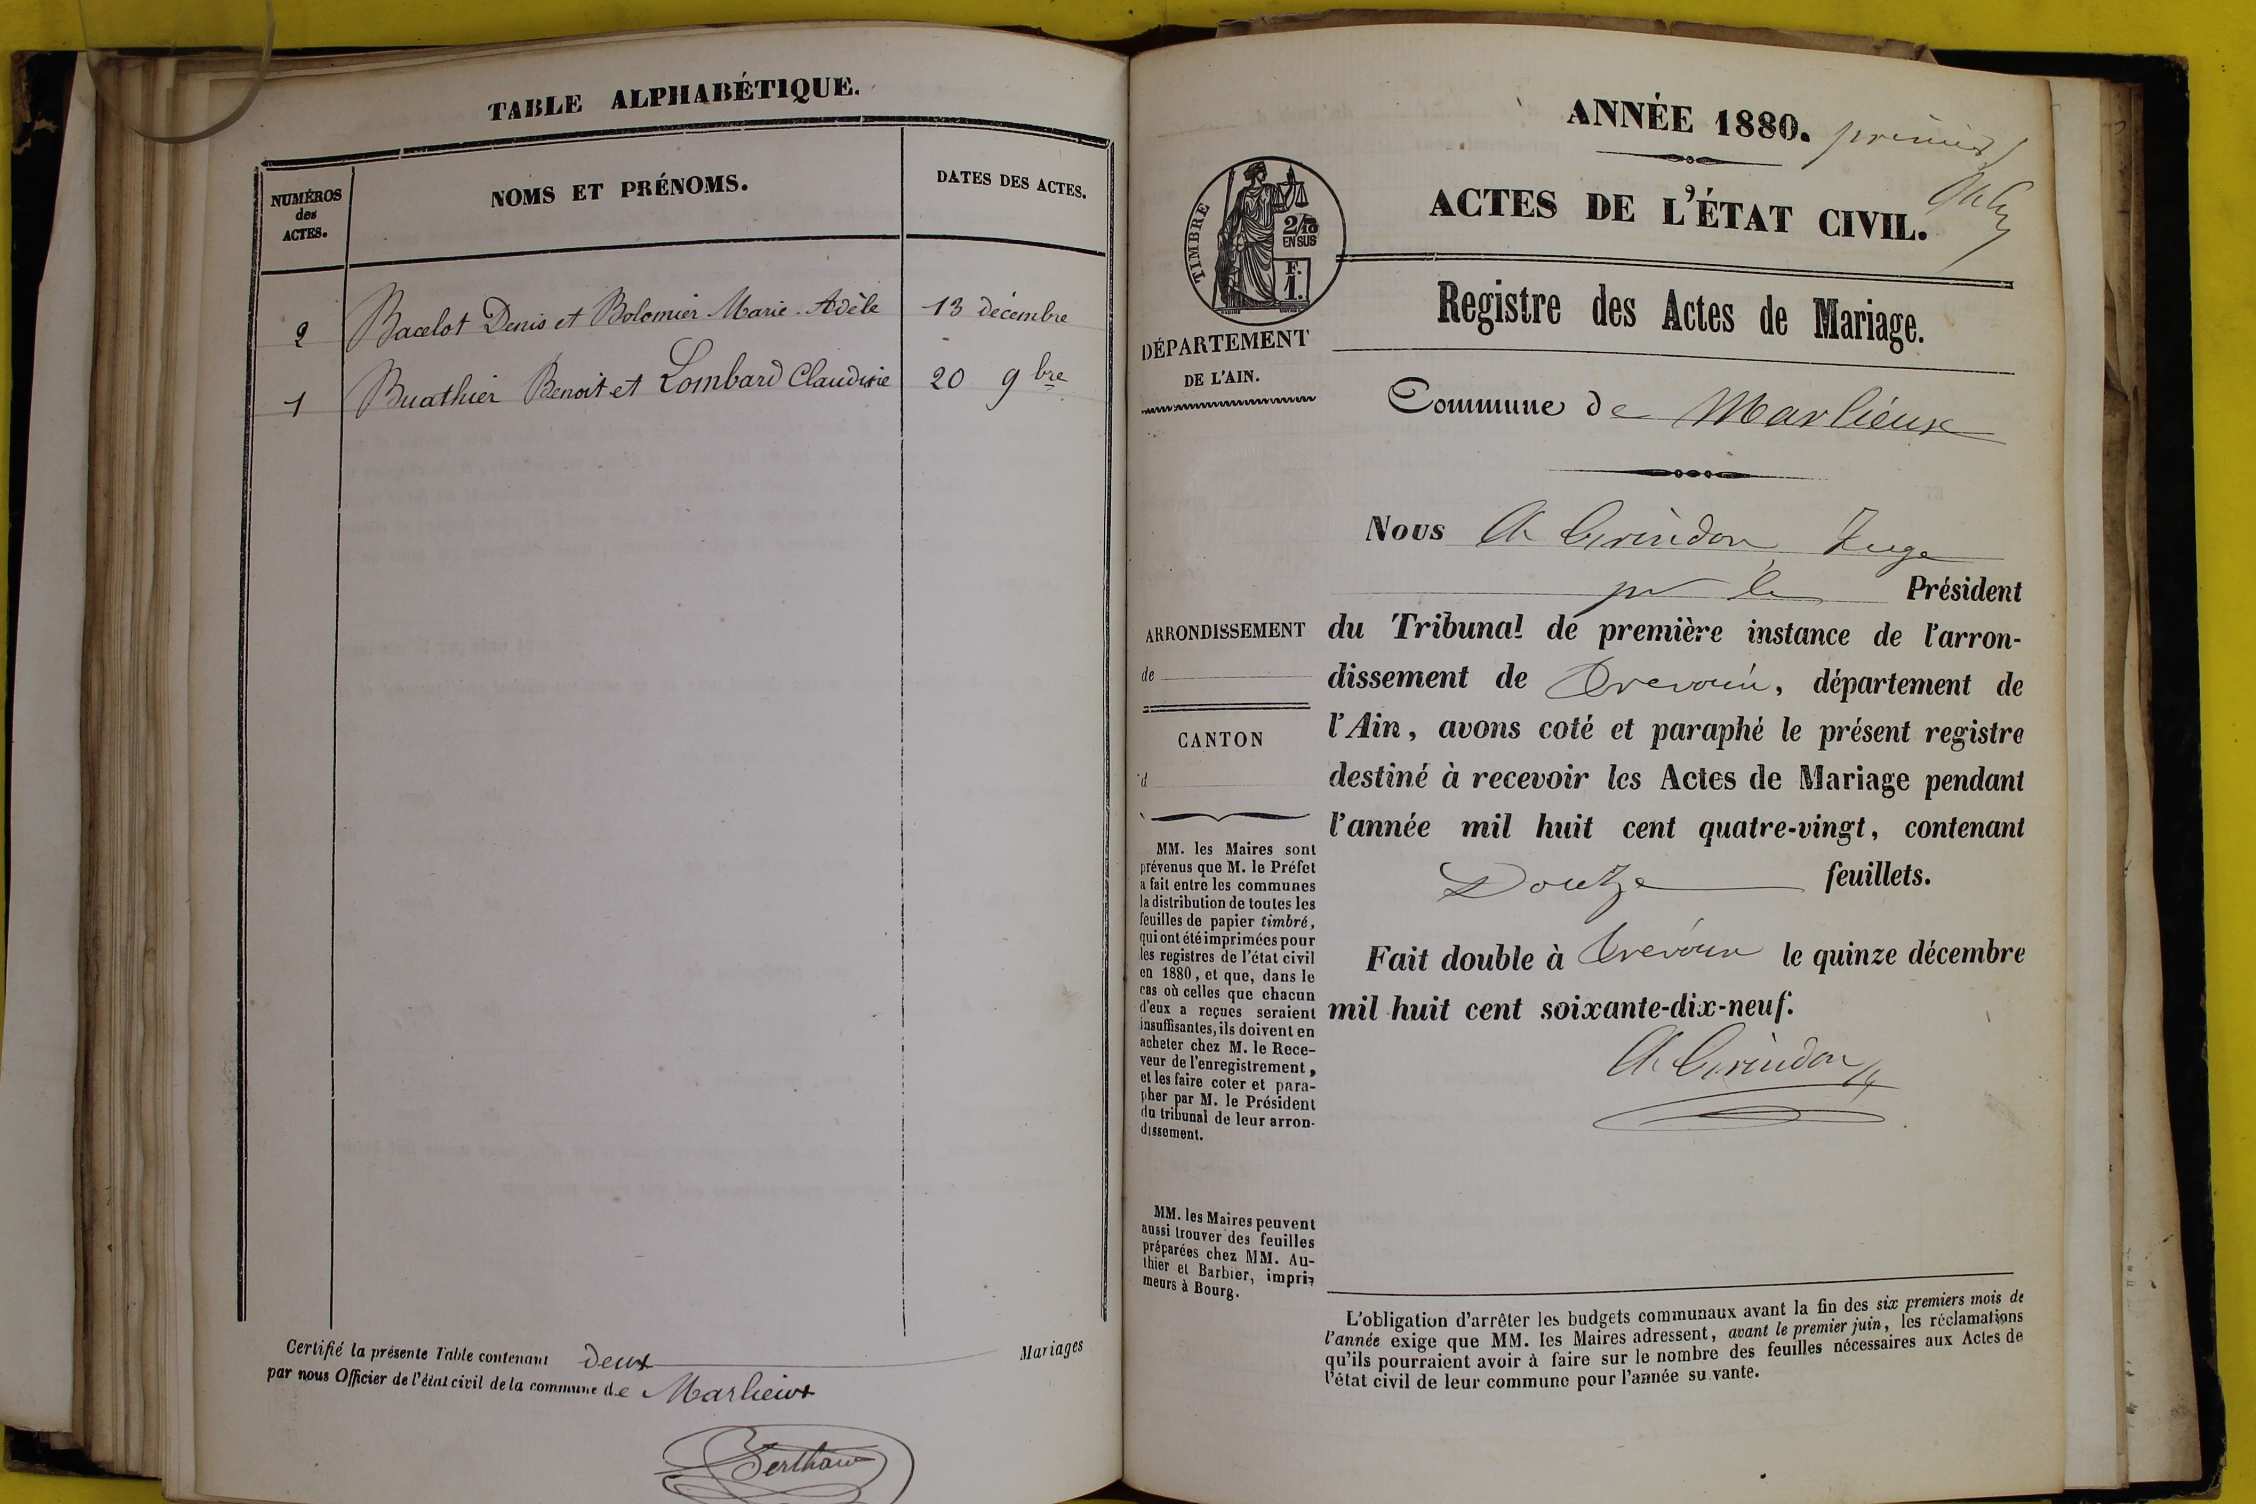 TABLE ALPHABÉTIQUE.
NUMÉROS
des
ACTES.
NOMS ET PRÉNOMS.
DATES DES ACTES.
2 Bacelot Denis et Bolomier Marie-Adèle 13 décembre
1 Buathier Benoit et Lombard Claudine 20 9bre
Certifié la présente Table contenant deux Mariages
par nous Officier de l'état civil de la commune de Marlieux
Berthaud
ANNÉE 1880. premier
ACTES DE L'ÉTAT CIVIL.
TIMBRE
2/10
EN SUS
F.
1.
Registre des Actes de Mariage.
DÉPARTEMENT
DE L'AIN.
Commune de Marlieux
Nous Juge
pr le Président
ARRONDISSEMENT
de
CANTON
d
du Tribunal de première instance de l'arron-
dissement de Trevoux, département de
l'Ain, avons coté et paraphé le présent registre
destiné à recevoir les Actes de Mariage pendant
l'année mil huit cent quatre-vingt, contenant
Douze feuillets.
Fait double à Trevoux le quinze décembre
mil huit cent soixante-dix-neuf.
MM. les Maires sont
prévenus que M. le Préfet
a fait entre les communes
la distribution de toutes les
feuilles de papier timbré,
qui ont été imprimées pour
les registres de l'état civil
en 1880, et que, dans le
cas où celles que chacun
d'eux a reçues seraient
insuffisantes, ils doivent en
acheter chez M. le Rece-
veur de l'enregistrement,
et les faire coter et para-
pher par M. le Président
du tribunal de leur arron-
dissement.
MM. les Maires peuvent
aussi trouver des feuilles
préparées chez MM. Au-
thier et Barbier, impri-
meurs à Bourg.
L'obligation d'arrêter les budgets communaux avant la fin des six premiers mois de
l'année exige que MM. les Maires adressent, avant le premier juin, les réclamations
qu'ils pourraient avoir à faire sur le nombre des feuilles nécessaires aux Actes de
l'état civil de leur commune pour l'année su vante.